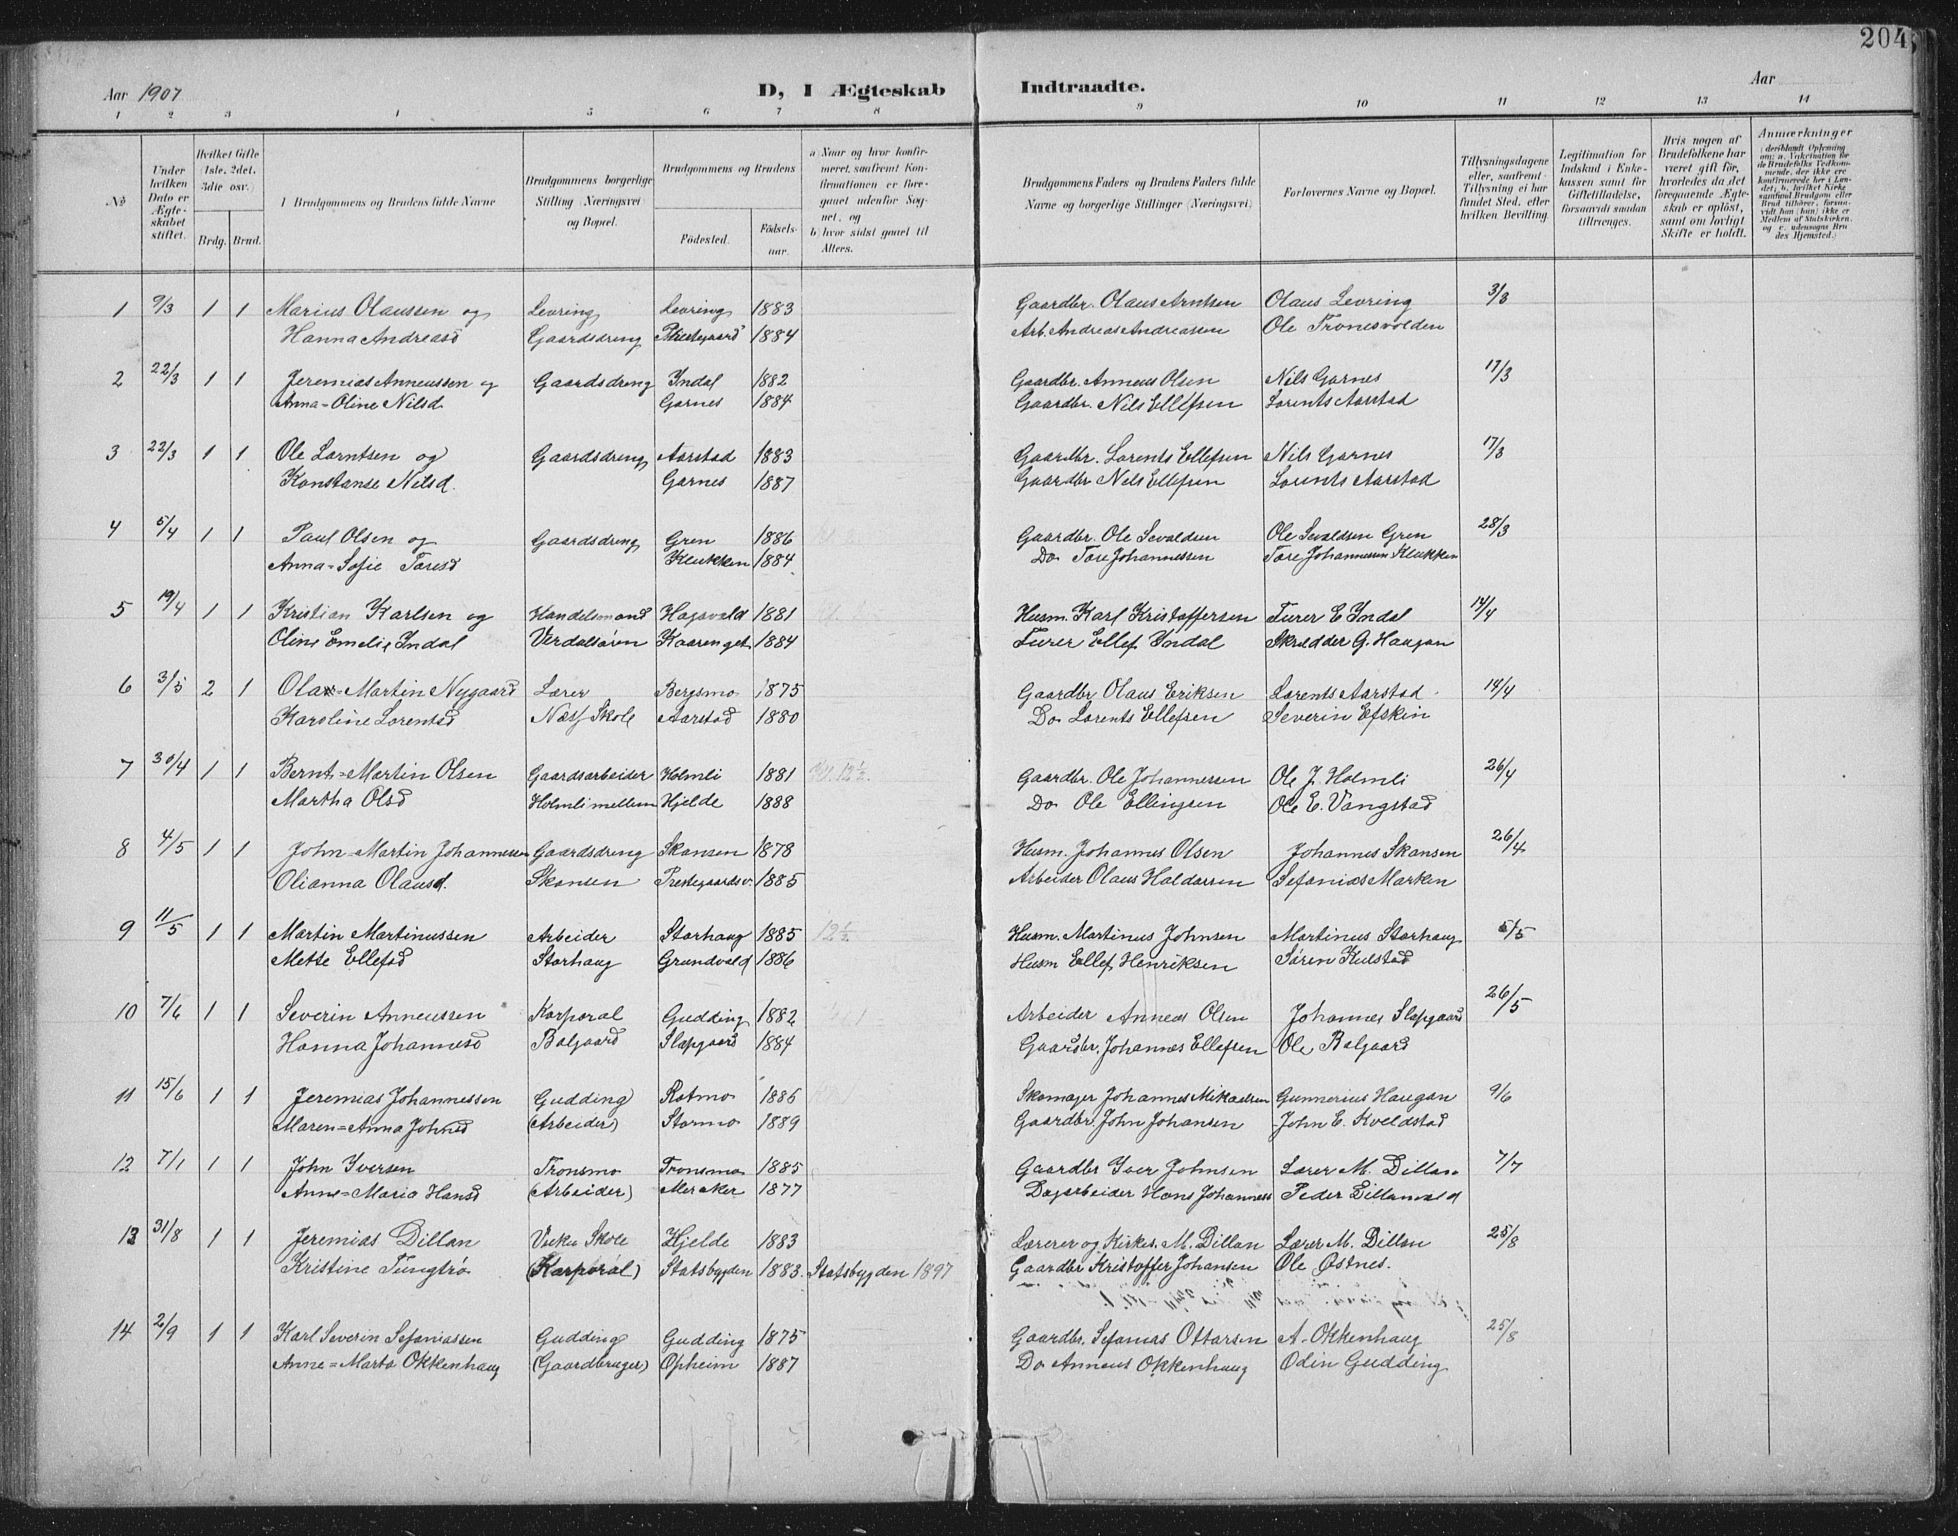 204
Aar 1907 D, I Ægteskab Indtraadte. Aar
1 2 3 4 5 6 7 8 9 10 11 12 13 14
No
Under hvilken Dato er Ægteskabet stiftet.
Hvilket Gifte (1ste. 2det. 3die osv.)
Brdg. Brud.
I Brudgommens og Brudens fulde Navne
Brudgommens borgerlige Stilling (Næringsvei) og Bopæl.
Brudgommens og Brudens
Födested. Födsels-aar.
a Naar og hvor konfirmeret, samfremt Konfirmationen er foregaaet udenfor Sognet, og
b hvor sidst gaaet til Alters.
Brudgommens Faders og Brudens Faders fulde Navne og borgerlige Stillinger (Næringsvei)
Forlovernes Navne og Bopæl.
Tillysningsdagene eller, samfremt Tillysning ei har fundet Sted, efter hvilken Bevilling.
Legitimation for Indskud i Enkekassen samt for Giftetilladelse, forsaavidt saadan tiltrænges.
Hvis nogen af Brudefolkene har været gift för, hvorledes da det foregaaende Ægteskab er oplöst, samt om lovligt Skifte er holdt.
Anmærkninger
(deriblandt Oplysning om: a. Vakcination for de Brudefolks Vedkommende, der ikke ere konfirmerede her i Landet; b. hvilket Kirkesamfund Brudgom eller Brud tilhörer, forsaavidt han (hun) ikke er Medlem af Statskirken, og c. udensogns Brudes Hjemsted.)
1 9/3 1 1 Marius Olaussen og Levring Levring 1883 Gaardbr. Olaus Arntsen Olaus Levring 3/3
Hanna Andreasd Gaardsdreng Prestegaard 1884 Arb. Andreas Andreassen Ole Tronesvolden
2 22/3 1 1 Jeremias Anneussen og Gaardsdreng Indal 1882 Gaardbr. Anneus Olsen Nils Garnes 17/3
Anna-Oline Nilsd Garnes 1884 Gaardbr. Nils Ellefsen Lorents Aarstad
3 22/3 1 1 Ole Lorntsen og Gaardsdreng Aarstad 1883 Gaardbr. Lorents Ellefsen Nils Garnes 17/3
Konstanse Nilsd. Garnes 1887 Gaardbr Nils Ellefsen Lorents Aarstad
4 5/4 1 1 Paul Olsen og Gaardsdreng Gren 1886 Gaardbr. Ole Sevaldsen Ole Sevaldsen Gren 28/3
Anna-Sofie Toresd Klukken 1884 Do Tore Johannessen Tore Johannessen Klukken
5 19/4 1 1 Kristian Karlsen og Handelsmand Hagavald 1881 Husm. Karl Kristoffersen Furer E Indal 14/4
Oline Emelie Indal Verdalsören Kaarenget 1884 Furer Ellef Indal Skrædder G. Haugan
6 3/5 2 1 Ola-Martin Nygaard Lærer Bergsmo 1875 Gaardbr Olaus Eriksen Lorents Aarstad 14/4
Karoline Lorentsd Næs Skole Aarstad 1880 Do Lorents Ellefsen Severin Efskin
7 30/4 1 1 Bernt-Martin Olsen Gaardsarbeider Holmli 1881 Gaardbr. Ole Johannessen Ole J. Holmli 26/4
Martha Olsd Holmli mellem Hjelde 1888 Do Ole Ellingsen Ole E. Vangstad
8 4/5 1 1 John-Martin Johannessen Gaardsdreng Skansen 1878 Husm. Johannes Olsen Johannes Skansen 26/4
Olianna Olausd. Skansen Prestegaardsv. 1885 Arbeider Olaus Haldorsen Sefanias Marken
9 11/5 1 1 Martin Martinussen Arbeider Storhaug 1885 Husm. Martinus Johnsen Martinus Storhaug 5/5
Mette Ellefsd Storhaug Grundvald 1886 Husm Ellef Henriksen Sören Kulstad
10 7/6 1 1 Severin Anneussen Korporal Gudding 1882 Arbeider Anneus Olsen Johannes Slapgaard 26/5
Hanna Johannesd Balgaard Slapgaard 1884 Gaardbr. Johannes Ellefsen Ole Balgaard
11 15/6 1 1 Jeremias Johannessen Gudding Rotmo 1886 Skomager Johannes Mikaelsen Gunnerius Haugan 9/6
Maren-Anna Johnsd (Arbeider) Stormo 1889 Gaardbr. John Johansen John E. Kveldstad
12 7/1 1 1 John Iversen Tronsmo Tronsmo 1885 Gaardbr Iver Johnsen Lærer M. Dillan 7/7
Anne-Maria Hansd (Arbeider) Meraker 1877 Dagarbeider Hans Johanness Peder Dillanvald
13 31/8 1 1 Jeremias Dillan Vuku Skole Hjelde 1883 Lærer og Kirkes. M. Dillan Lærer M. Dillan 25/8
Kristine Tungtrø (Korporal) Statsbygden 1883. Statsbygden 1897 Gaardbr Kristoffer Johansen Ole Østnes.
14 2/9 1 1 Karl Severin Sefaniassen Gudding Gudding 1875 Gaardbr. Sefanias Ottarsen A. Okkenhaug 25/8
Anne-Marta Okkenhaug (Gaardbruger) Opheim 1887 Do Anneus Okkenhaug Odin Gudding